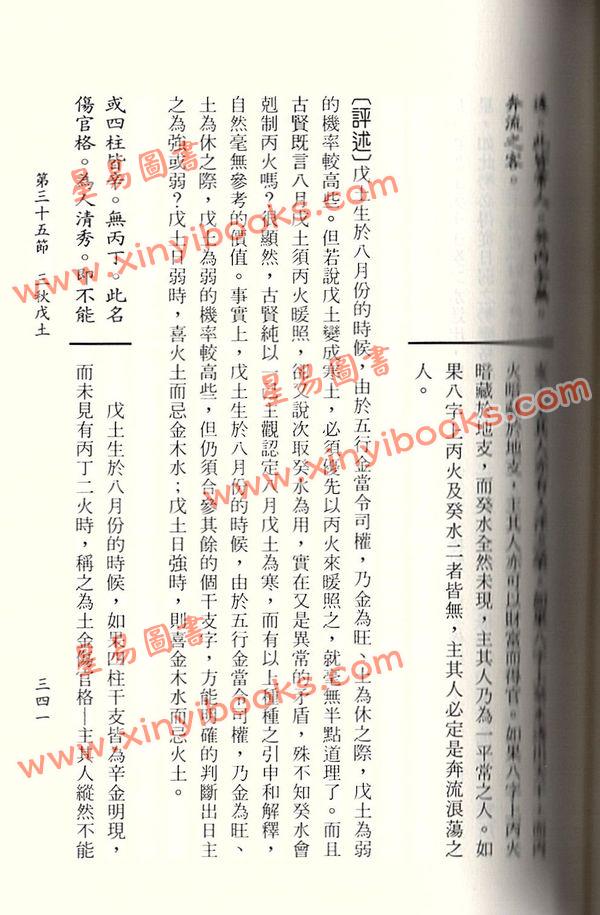 奔流之客。
火暗藏於地支，主其人亦可以財富而得官。如果八字上丙火
暗藏於地支，而癸水全然未現，主其人乃為一平常之人。如
果八字上丙火及癸水二者皆無，主其人必定是奔流浪蕩之
人。
〔評述〕戊土生於八月份的時候，由於五行金當令司權，乃金為旺、土為休之際，戊土為弱
的機率較高些。但若說戊土變成寒土，必須優先以丙火來暖照之，就毫無半點道理了。而且
古賢既言八月戊土須丙火暖照，卻又說次取癸水為用，實在又是異常的矛盾，殊不知癸水會
剋制丙火嗎？很顯然，古賢純以一主觀認定八月戊土為寒，而有以上種種之引申和解釋，
自然毫無參考的價值。事實上，戊土生於八月份的時候，由於五行金當令司權，乃金為旺、
土為休之際，戊土為弱的機率較高些，但仍須合參其餘的個干支字，方能明確的判斷出日主
之為強或弱？戊土日弱時，喜火土而忌金木水；戊土日強時，則喜金木水而忌火土。
或四柱皆辛。無丙丁。此名
傷官格。為人清秀。即不能
戊土生於八月份的時候，如果四柱干支皆為辛金明現，
而未見有丙丁二火時，稱之為土金傷官格─主其人縱然不能
第三十五節 三秋戊土
三四一
星易圖書
www.xinyibooks.com
星易圖書
www.xinyibooks.com
星易圖書
www.xinyibooks.com
星易圖書
www.xinyibooks.com